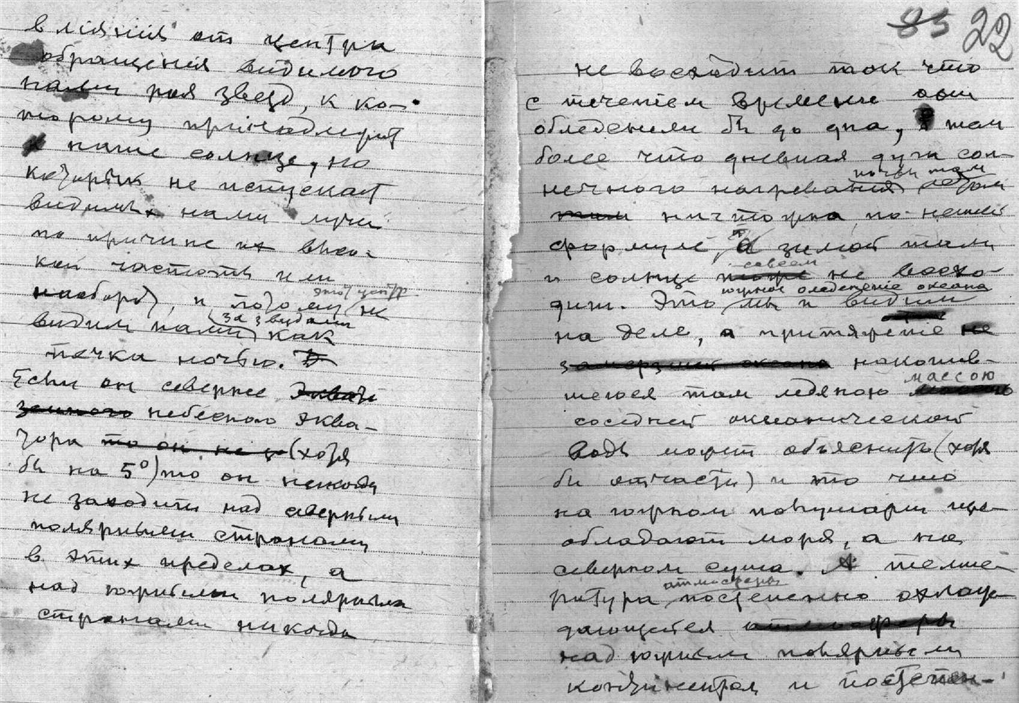 влияния от центра
обращения видимого
нами роя звезд, к ко-
торому принадлежит
и наше солнце, но
который не испускает
видимых нами лучей
по причине их высо-
кой частоты или
наоборот, и потому этот центр не
видим нами за звездами как
точка ночью.
Если он севернее
земного небесного эква-
тора то он не (хотя
бы на 5°) то он никогда
не заходит над северными
полярными странами
в этих пределах, а
над южными полярными
странами никогда
85 22
не восходит так что
с течением времени они
обледенели бы до дна, тем
более что дневная дуга сол-
нечного нагревания почти там летом
ничтожна по нашей
формуле, а зимой там
и солнце совсем не восхо-
дит. Это мы и видим южное оледенение океана
на деле, а притяжение не
замерзшек океана накопив-
шеюся там ледяною массою
соседней океанической
воды может объяснить (хотя
бы отчасти) и то что
на южном полушарии пре-
обладают моря, а на
северном суша. А темпе-
ратура атмосферы постепенно охлаж-
дающегося атмосферы
над южным полярным
континентом и постепен-